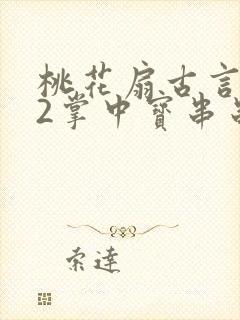 桃花扇古言
2掌中寶串
索達